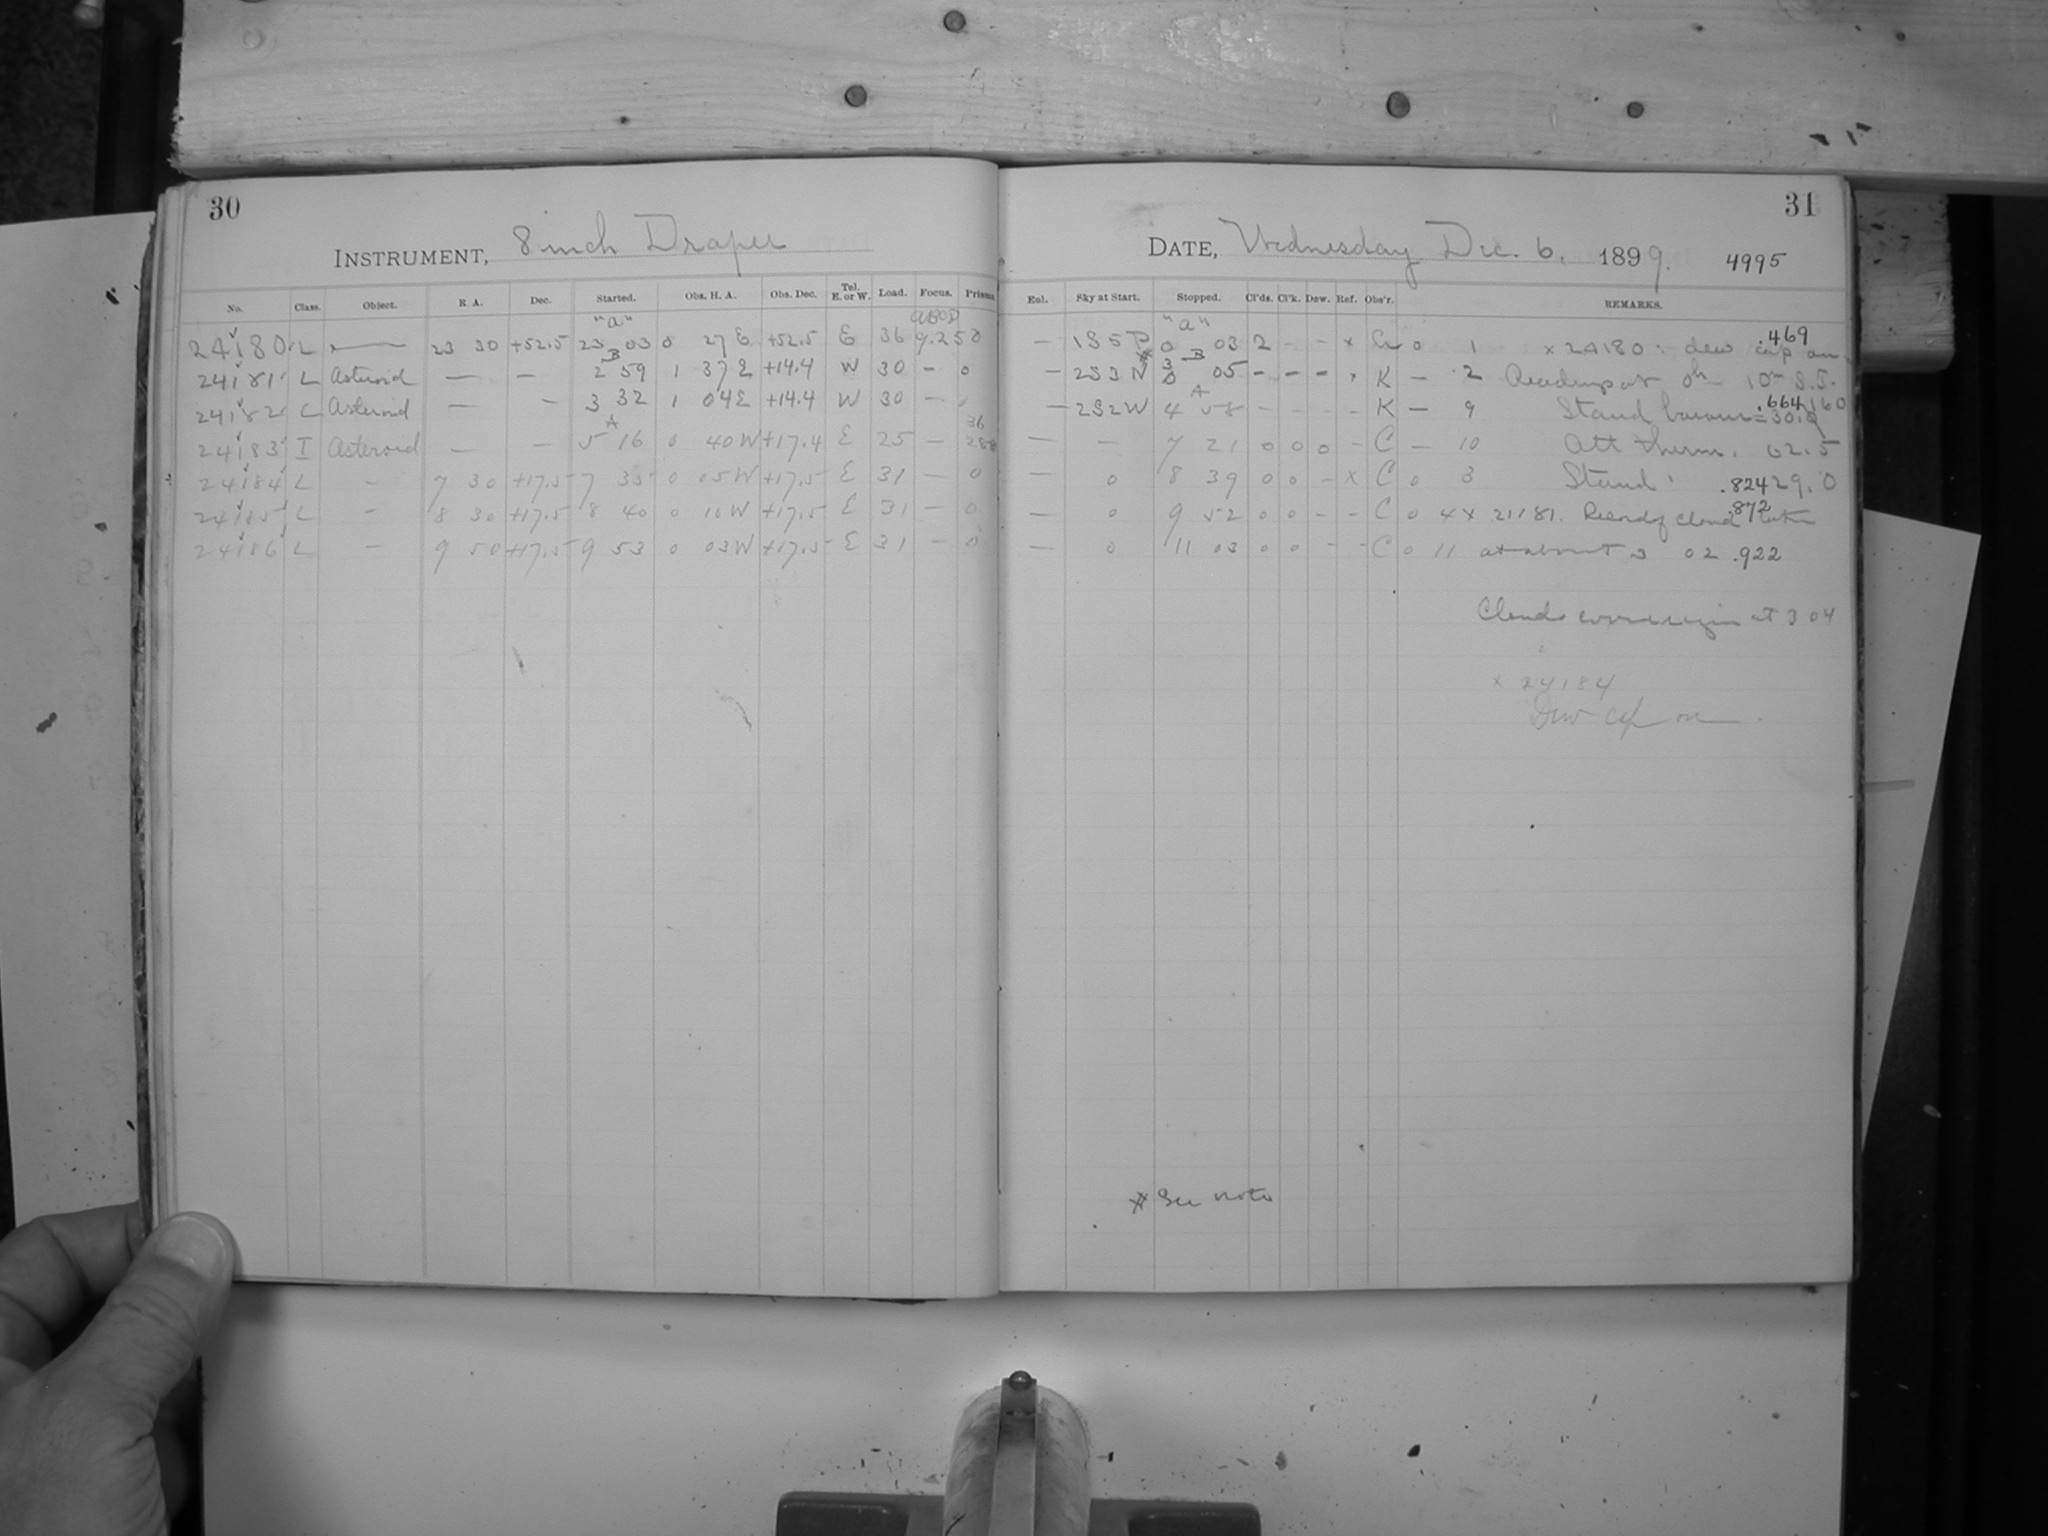 30
INSTRUMENT, 8 inch Draper
No. Class. Object. R. A. Dec. Started. Obs. H. A. Obs. Dec. Tel. E. or W. Load. Focus. Prisms
"a"
24180 L — 23 30 +52.5 23 03 0 27 E +52.5 E 36 9.25 0
B
24181 L Asteroid — — 2 59 1 37 E +14.4 W 30 - 0
24182 L Asteroid — — 3 32 1 04 E +14.4 W 30 — 0
A 36
24183 I Asteroid — — 5 16 0 40 W +17.4 E 25 —
24184 L - 7 30 +17.5 7 35 0 05 W +17.5 E 31 — 0
24185 L - 8 30 +17.5 8 40 0 10 W +17.5 E 31 — 0
24186 L - 9 50 +17.5 9 53 0 03 W +17.5 E 31 — 0
31
DATE, Wednesday Dec. 6, 1899. 4995
Enl. Sky at Start. Stopped. Cl'ds. Cl'k. Dew. Ref. Obs'r. REMARKS.
"a" .469
— 185 P 0 03 2 - - x 0 1 x 24180: dew cap on
B
— 233 N 3 05 - - - K — 2 Readings at 0h 10m S.T.
A .664
— 232 W 4 58 - - - - K — 9 Stand barom = 30.
— — 7 21 0 0 0 - C — 10 Att therm. 62.5
— 0 8 39 0 0 - x C 0 3 Stand .824 29.0
.872
— 0 9 52 0 0 - - C 0 4 x 24181. cloud taken
— 0 11 03 0 0 - - C 0 11 at about 3 02 .922
Clouds at 3 04
x 24184
Dew cap on
* See note